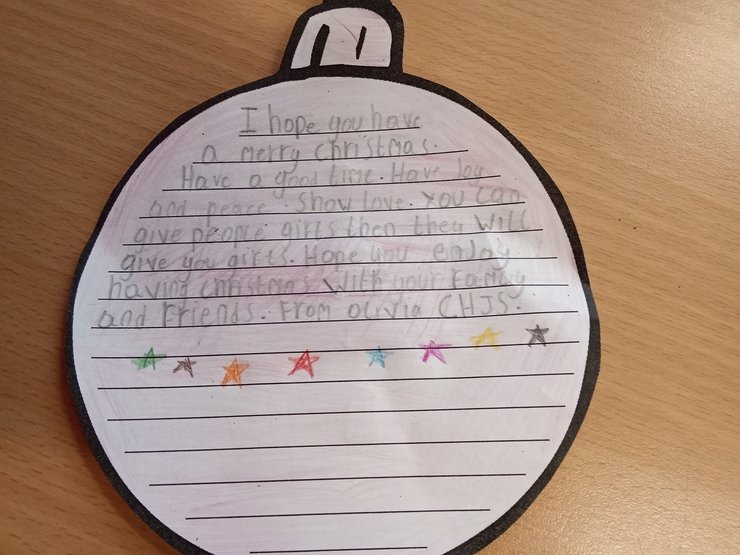 I hope you have
a merry christmas.
Have a good time. Have Joy
and peace. Show love. You can
give people gifts then they will
give you gifts. Hope you enjoy
having christmas with your Family
and Friends. From olivia CHJS.